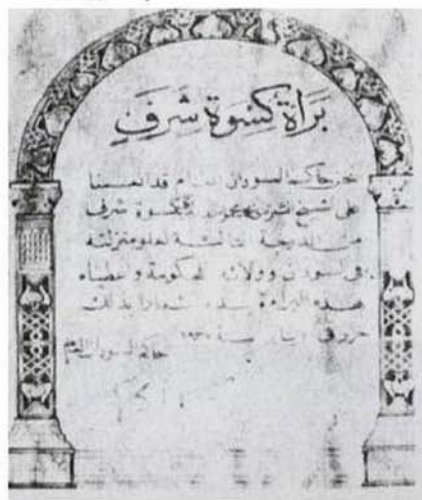 براة كسوة شرف
نحن حاكم السودان العام قد انعمنا
على الشيخ بكسوة شرف
من الدرجة الثالثة لعلو منزلته
في السودان وولائه للحكومة واعطيناه
هذه البراءة بيده اشعارا بذلك
حرر في سنة
حاكم السودان العام